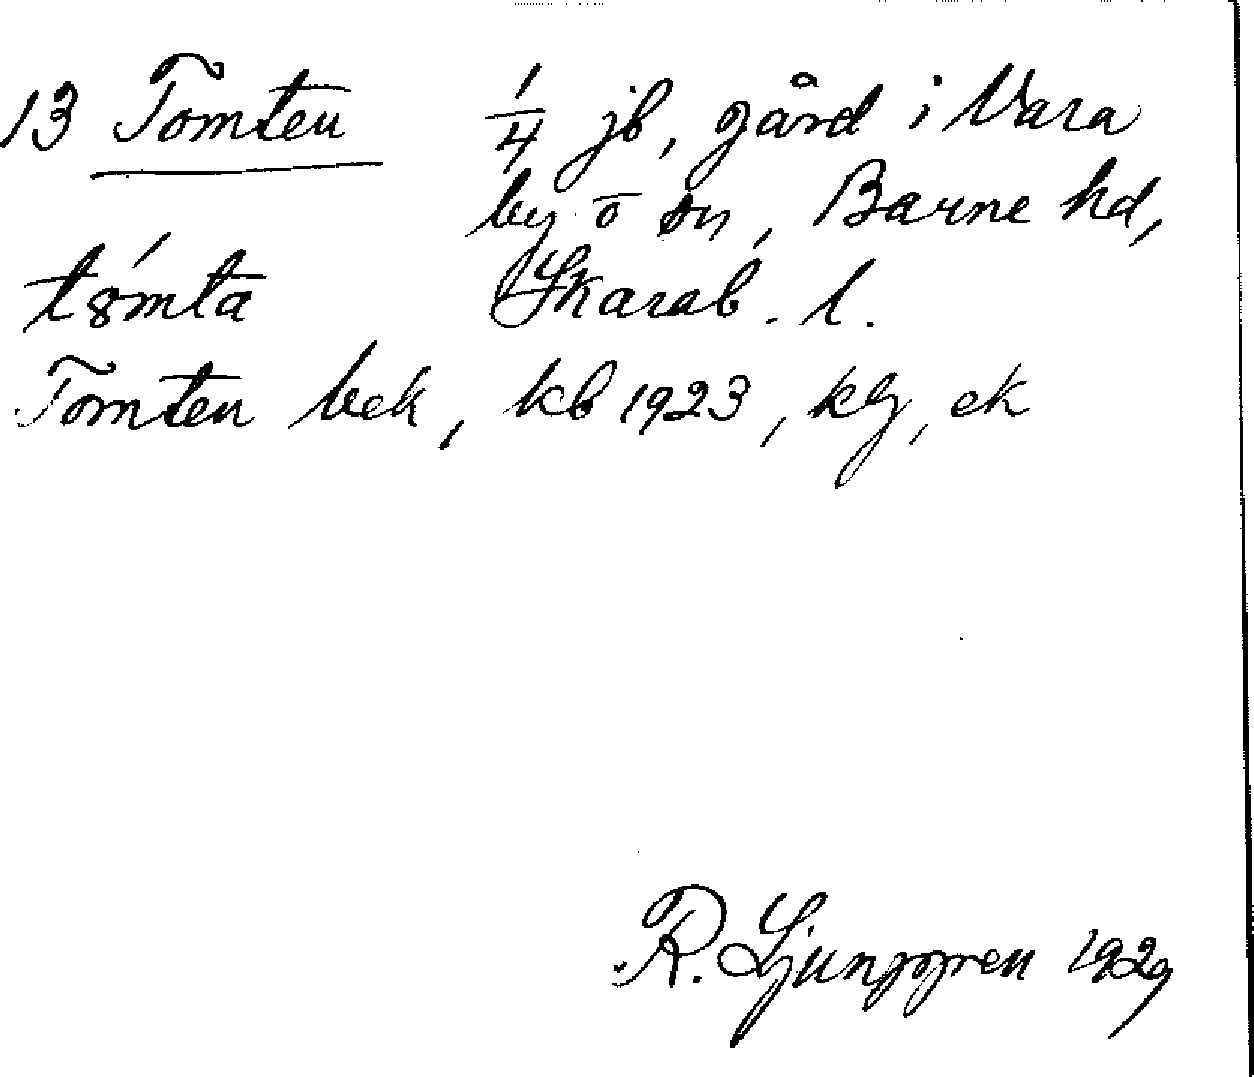 13 Tomten 1/4 jb, gård i Vara
by o sn, Barne hd,
Skarab. l.
tømta
Tomten bek, kb 1923, kg, ek
R. Ljunggren 1929